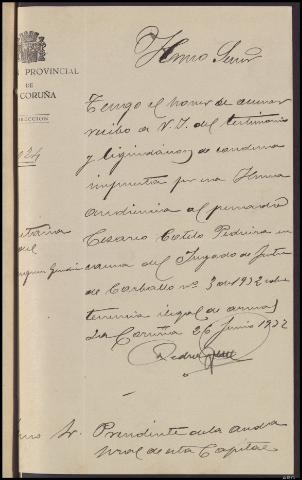 PROVINCIAL
DE
CORUÑA
DIRECCION
Ilmo Señor
Tengo el honor de acusar
recibo a V. I. del testimonio
y liquidación de condena
impuesta por esa Ilma
Audiencia al penado
Cesareo Cotelo Pedreira en
causa del Juzgado de
de Carballo nº 3 de 1932 sobre
tenencia ilegal de armas
La Coruña 26 Junio 1932
Sr. Presidente de la Audia
de esta Capital